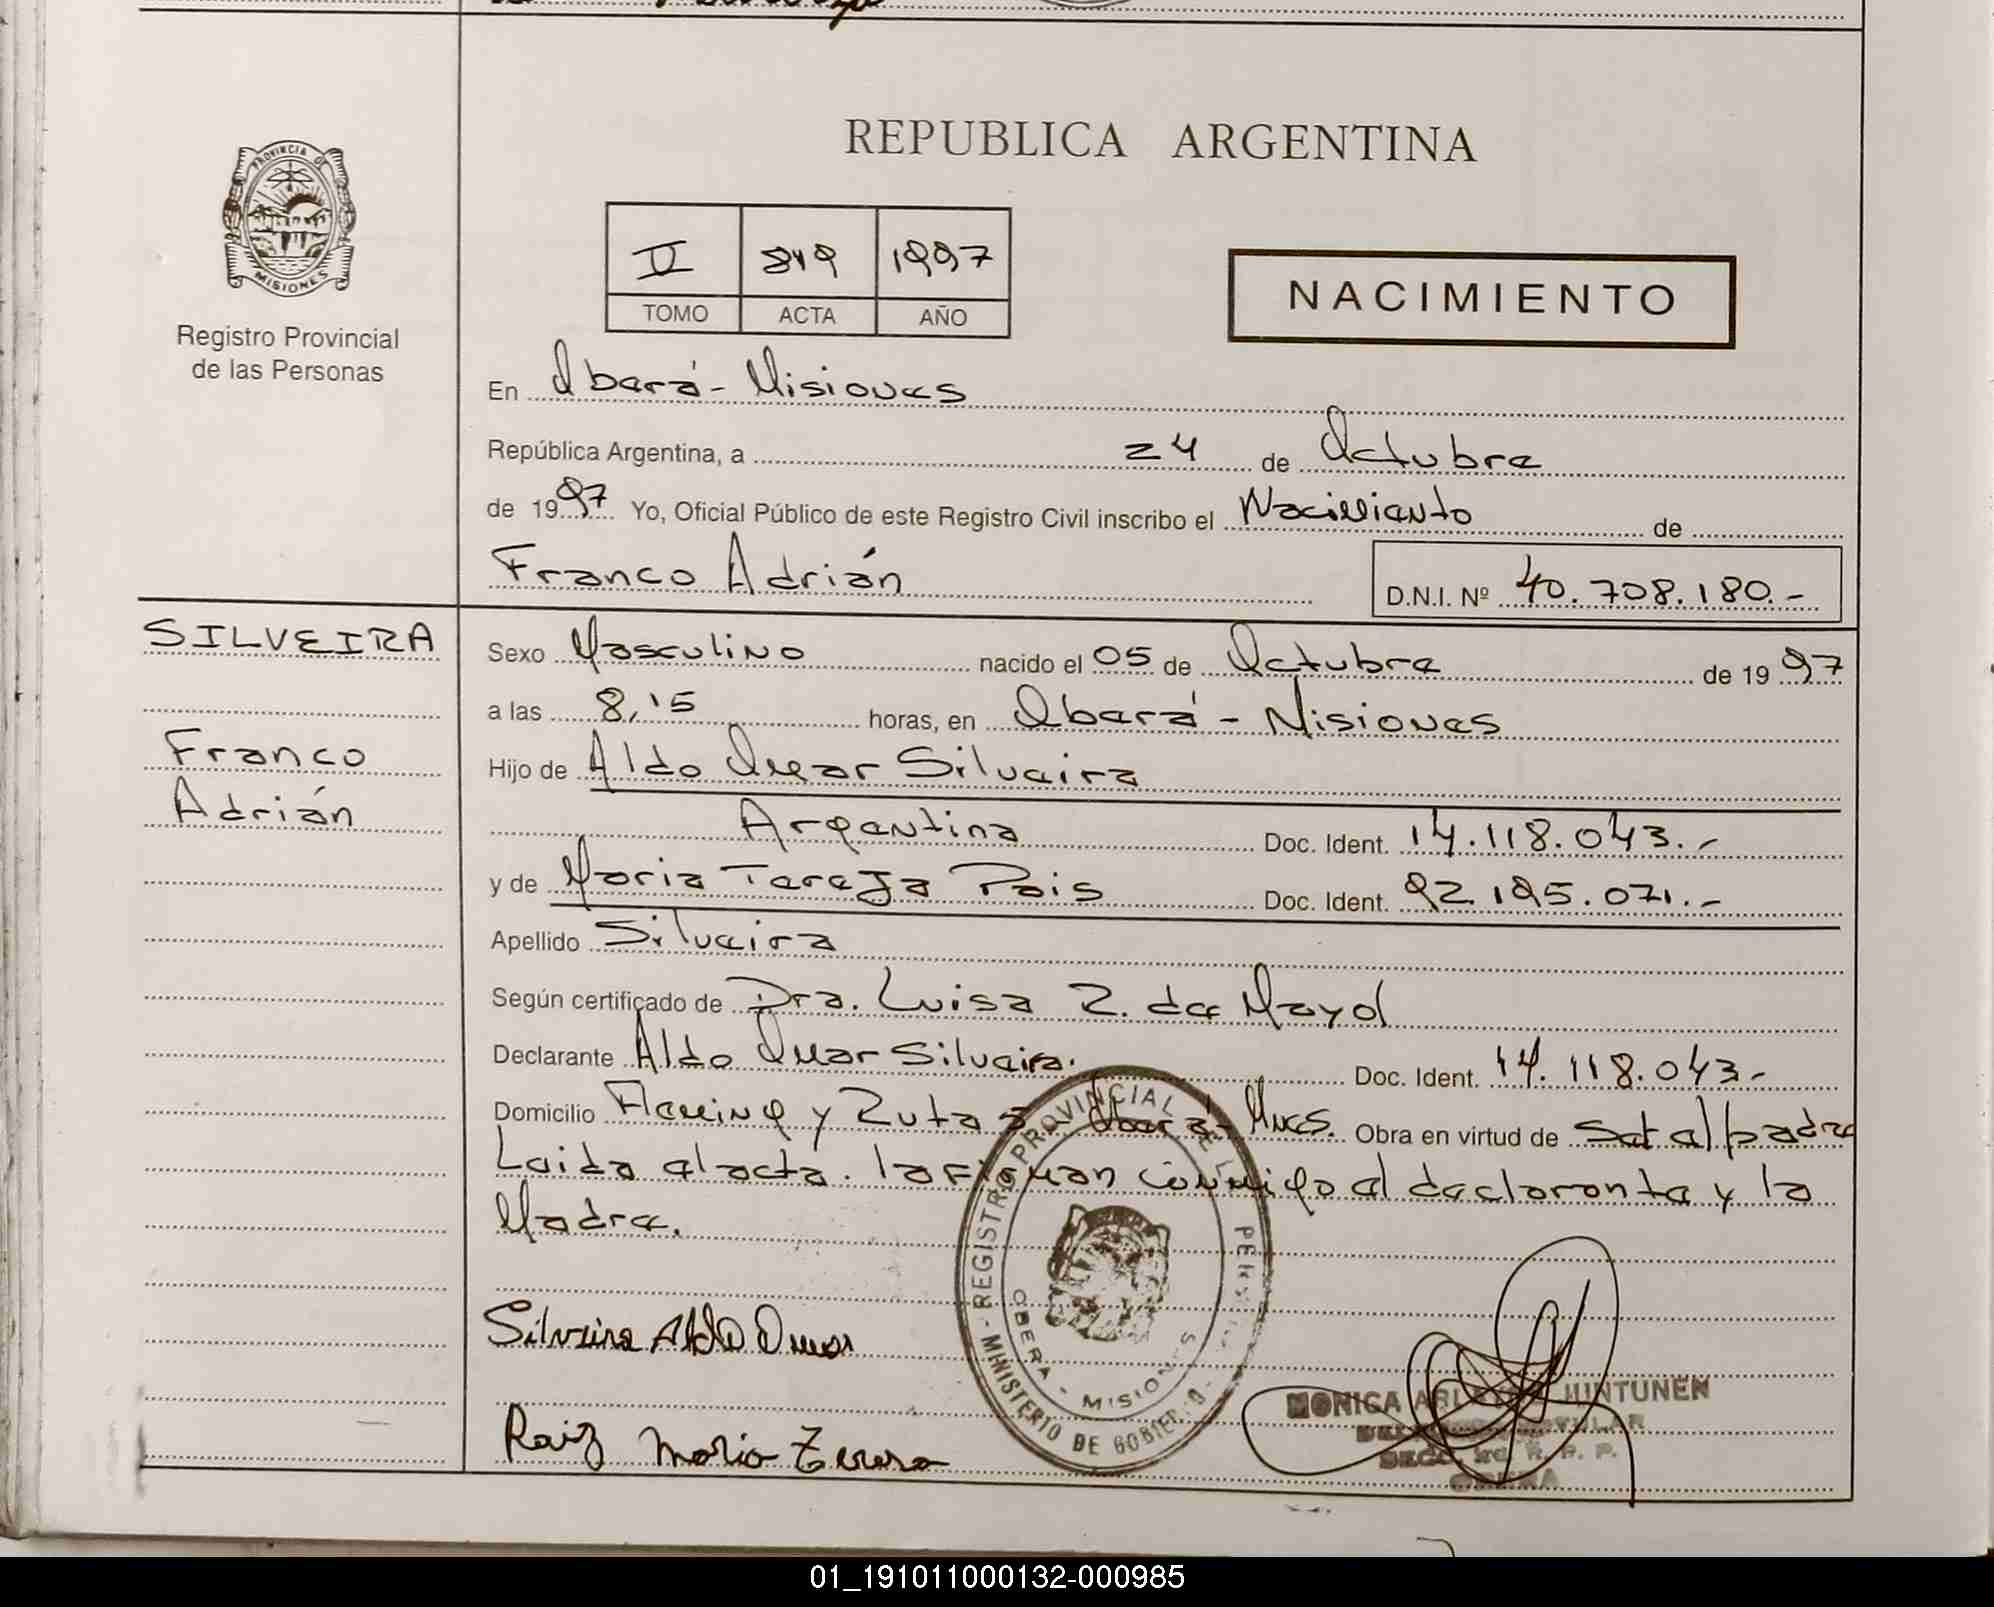 PROVINCIA DE
MISIONES
Registro Provincial
de las Personas
REPUBLICA ARGENTINA
II 849 1997
TOMO ACTA AÑO
NACIMIENTO
En Oberá - Misiones
República Argentina, a 24 de Octubre
de 1997 Yo, Oficial Público de este Registro Civil inscribo el Nacimiento de
Franco Adrián D.N.I. Nº 40.708.180.-
SILVEIRA
Franco
Adrián
Sexo Masculino nacido el 05 de Octubre de 1997
a las 8,15 horas, en Oberá - Misiones
Hijo de Aldo Omar Silveira
Argentina Doc. Ident. 14.118.043.-
y de Maria Tereza Rais Doc. Ident. 92.195.071.-
Apellido Silveira
Según certificado de Dra. Luisa R. de Mayol
Declarante Aldo Omar Silveira. Doc. Ident. 14.118.043.-
Domicilio Fleming y Ruta 5 Oberá - Mnes. Obra en virtud de ser el padre
Leida el acta. la firman conmigo el declarante y la
Madre.
Silveira Aldo Omar
Raiz Maria Tereza
REGISTRO PROVINCIAL DE LAS PERSONAS
MINISTERIO DE GOBIERNO
OBERA - MISIONES
MONICA JUNTUNEN
TITULAR
R. P. P.
OBERA
01_191011000132-000985